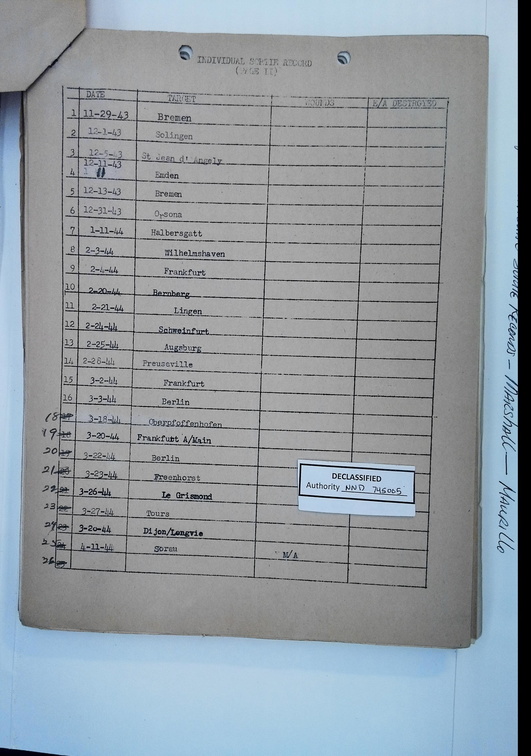 INDIVIDUAL SORTIE RECORD
(PAGE II)
DATE TARGET ROUNDS E/A DESTROYED
1 11-29-43 Bremen
2 12-1-43 Solingen
3 12-5-43 St Jean d' Angely
4 12-11-43 Emden
5 12-13-43 Bremen
6 12-31-43
7 1-11-44 Halbersgatt
8 2-3-44 Wilhelmshaven
9 2-4-44 Frankfurt
10 2-20-44 Bernberg
11 2-21-44 Lingen
12 2-24-44 Schweinfurt
13 2-25-44 Augsburg
14 2-26-44 Preuseville
15 3-2-44 Frankfurt
16 3-3-44 Berlin
18 3-18-44 Oberpfoffenhofen
19 3-20-44 Frankfubt A/Main
20 3-22-44 Berlin
21 3-23-44 Freenhorst
22 3-26-44 Le Grismond
23 3-27-44 Tours
24 3-20-44 Dijon/Longvie
25 4-11-44 Sorau N/A
26
DECLASSIFIED
Authority NND 745005
Records - Marshall - Maurillo